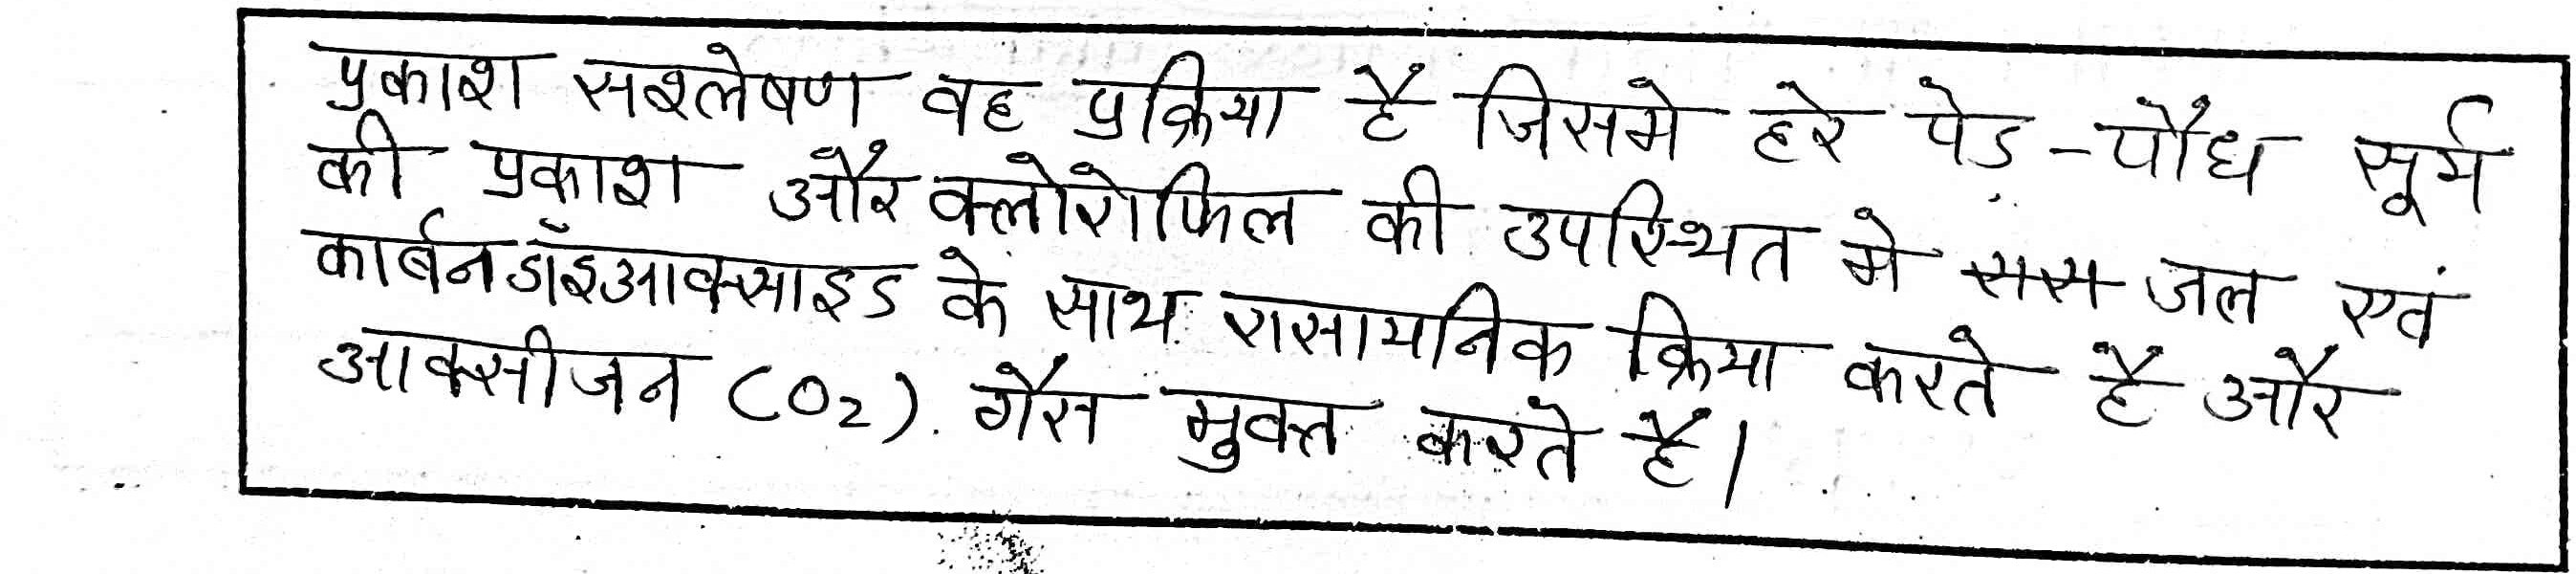 प्रकाश सश्लेषण वह प्रक्रिया है जिसमे हरे पेड़-पौध सूर्य
की प्रकाश और क्लोरोफिल की उपस्थित मे जल एवं
कार्बनडॉइआक्साइड के साथ रासायनिक क्रिया करते है और
आक्सीजन (O2) गैस मुक्त करते है।